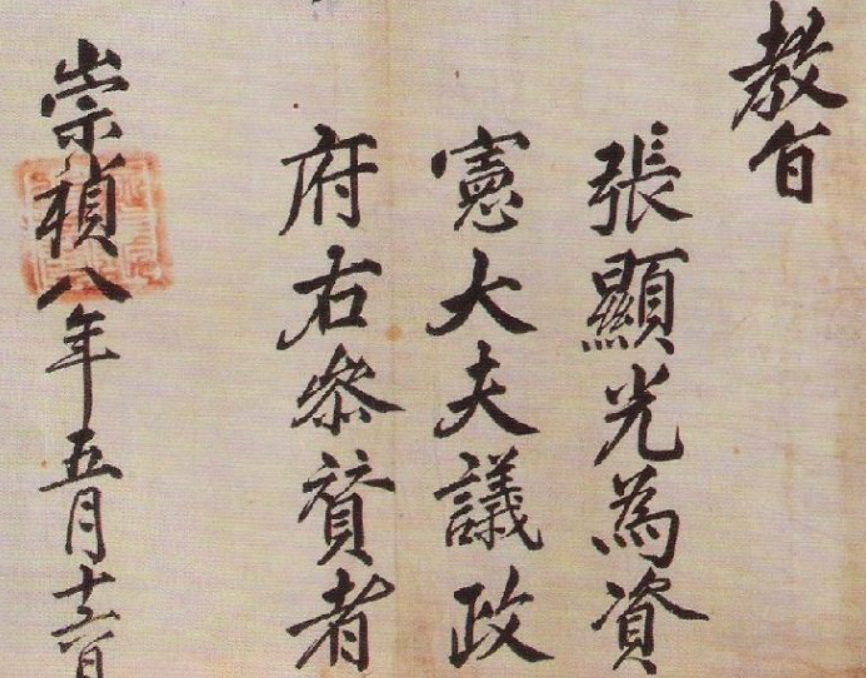 教旨
張顯光為資
憲大夫議政
府右叅贊者
崇禎八年五月十六日